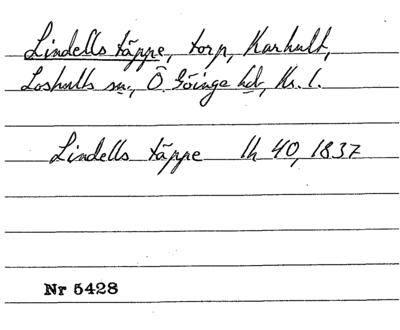 Lindells täppe, torp, Karhult,
Loshults sn., Ö. Göinge hd, Kr. l.
Lindells täppe lh 40, 1837
Nr 5428